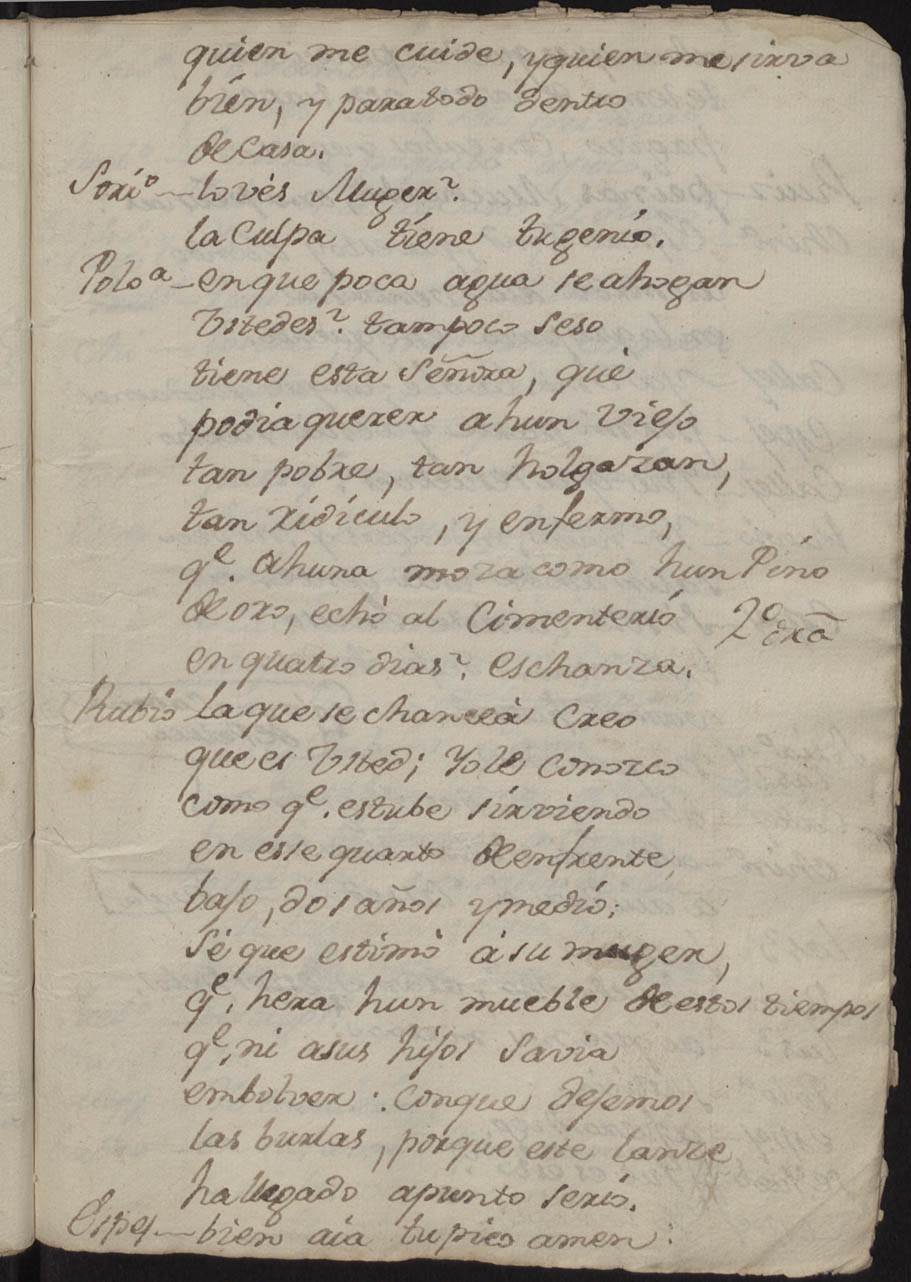 quien me cuide, y quien me sirva
bien, y para todo dentro
de Casa.
Sorio — lo vès Muger?
la Culpa tiene tu genio.
Poloa — en que poca agua se ahogan
Ustedes? tampoco Seso
tiene esta Señora, que
podia querer a hun Viejo
tan pobre, tan holgazan,
tan ridiculo, y enfermo,
qe. a huna moza como hun Pino
de oro, echò al Cimenterio 2o dra
en quatro dias? es chanza.
Rubio la que se chancèa Creo
que es Usted; Yo le Conozco
como qe. estube sirviendo
en esse quarto de enfrente,
bajo, dos años y medio;
Sé que estimò à su muger,
qe. hera hun mueble de estos tiempos
qe. ni a sus hijos Savia
embolver. Conque dejemos
las burlas, porque este lanze
ha llegado a punto serio.
Espej — bien aia tu pico amen.